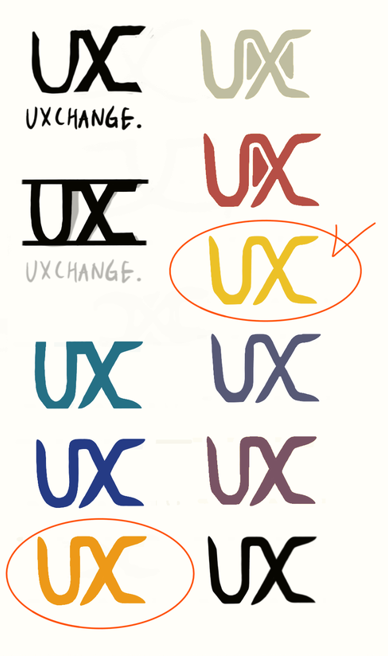 UX
UXCHANGE.
UX
UXCHANGE.
UX
UX
UX
UX
UX
UX
UX
UX
UX